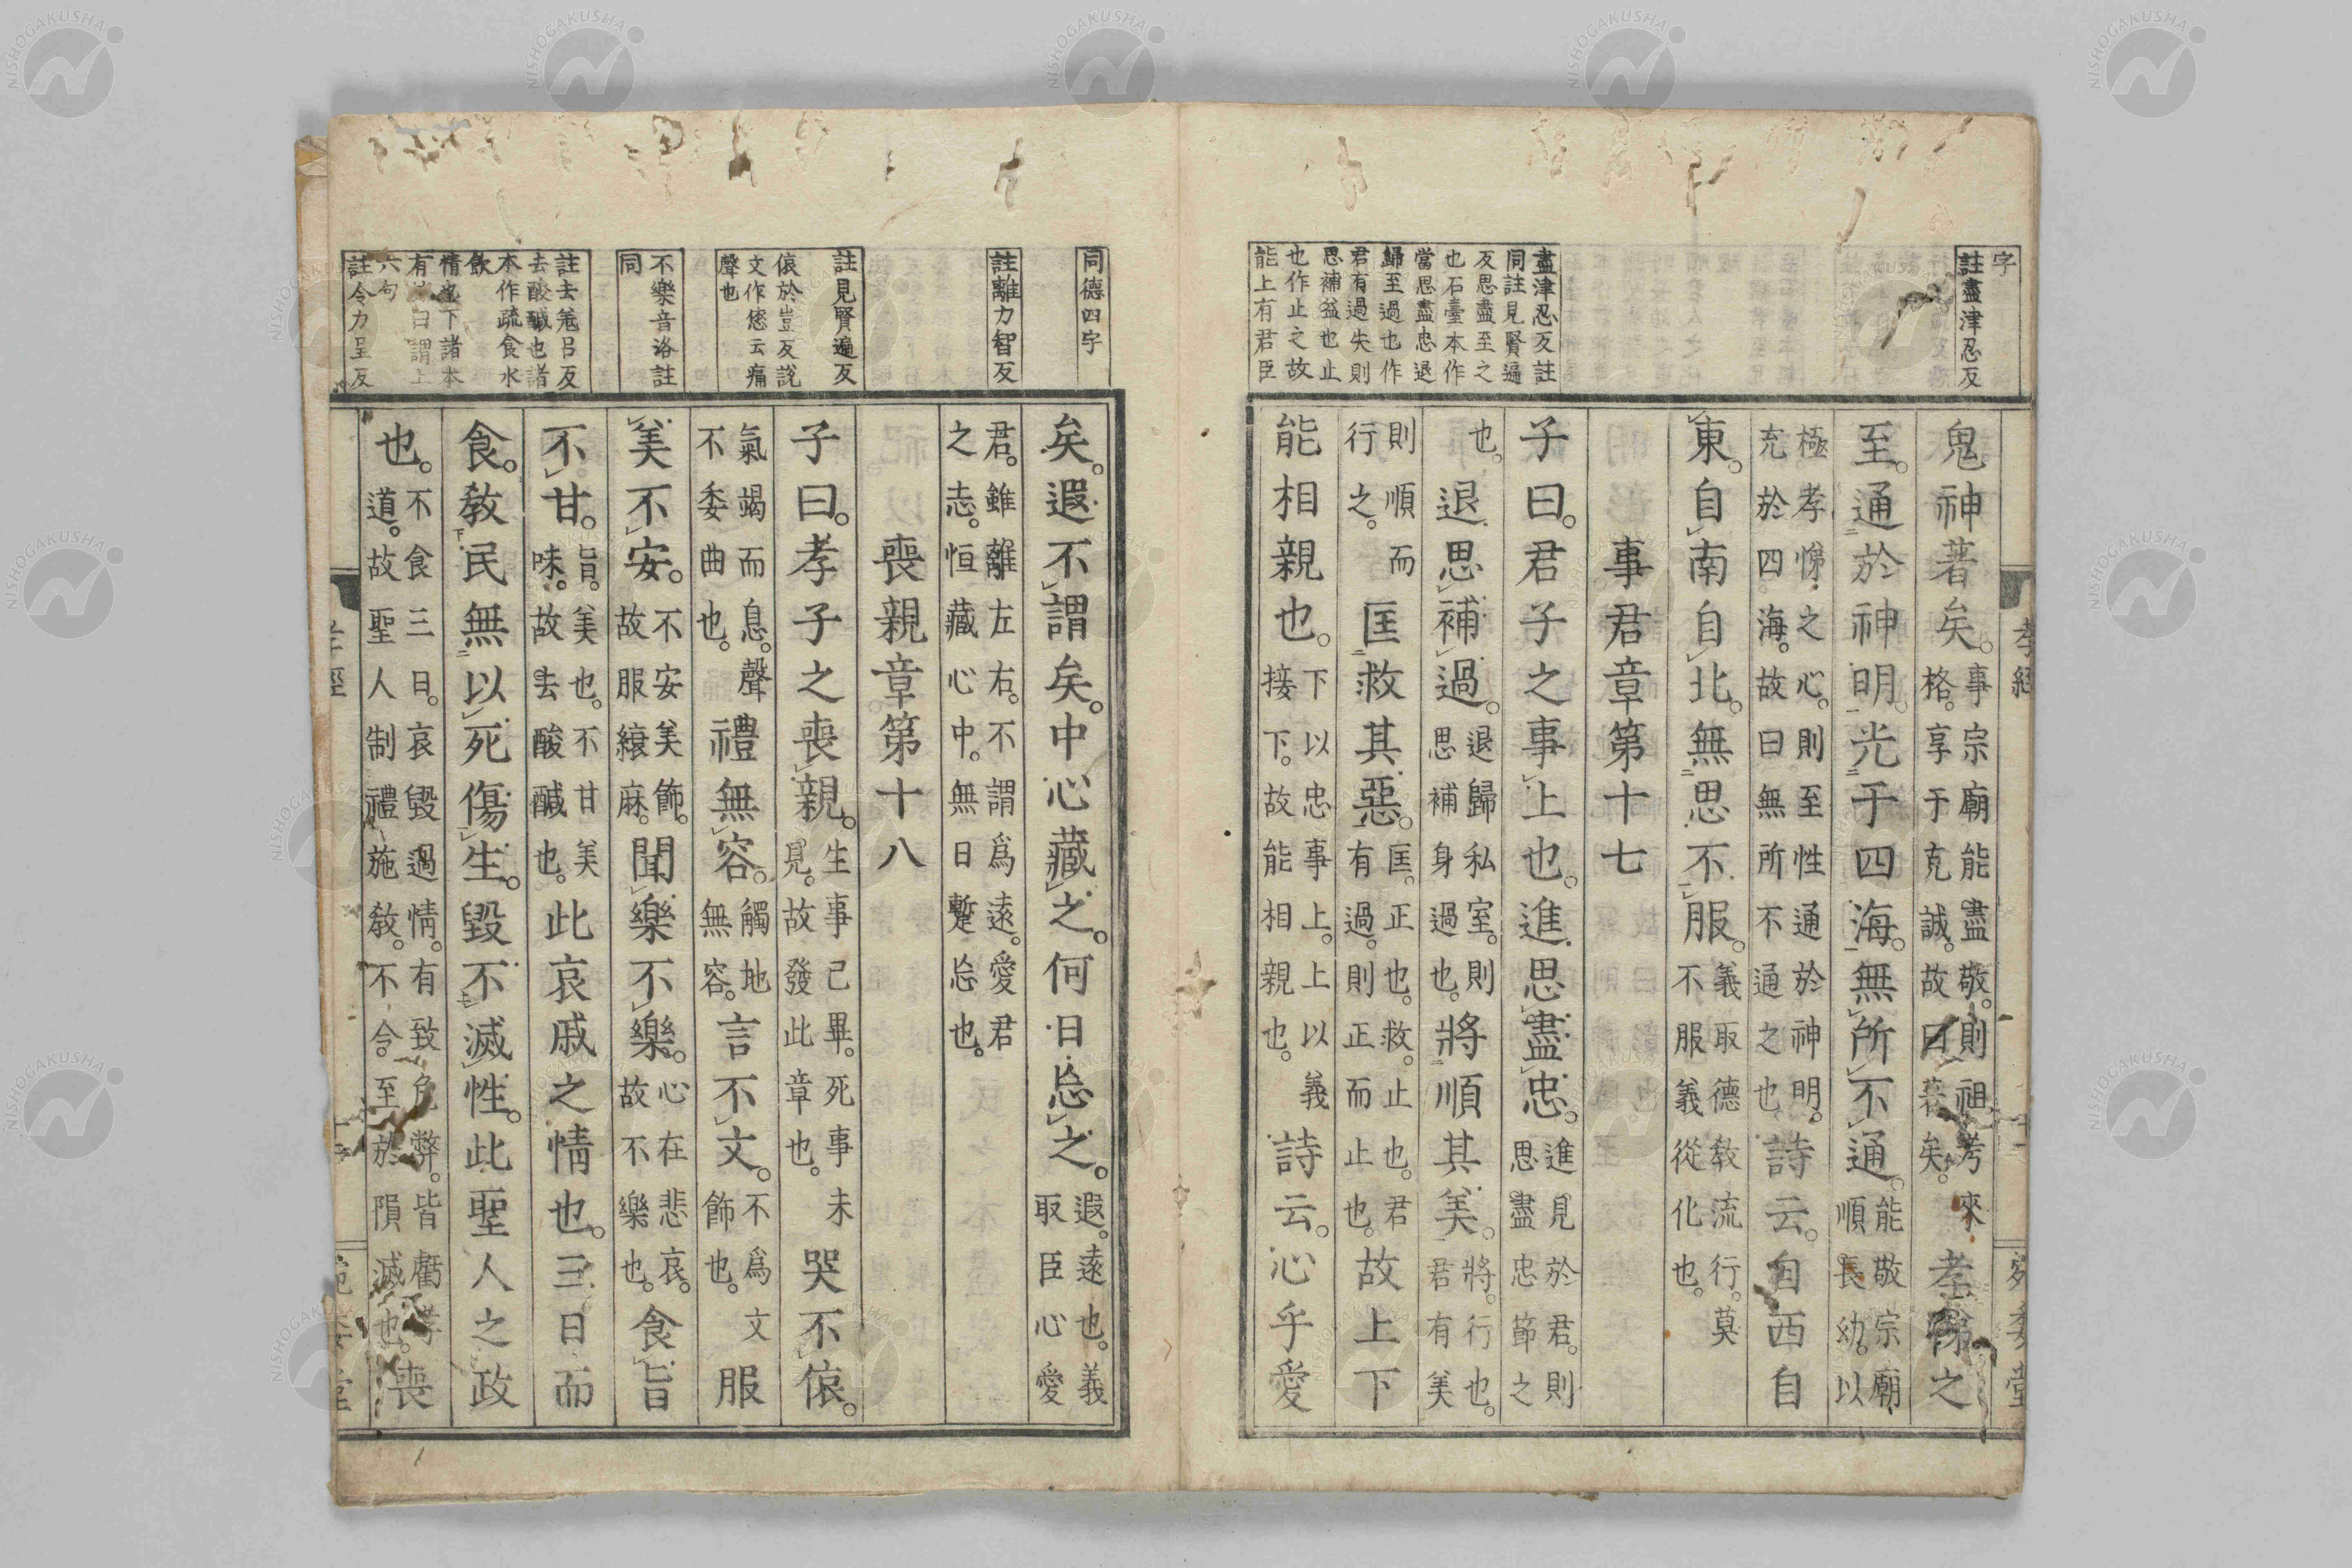 字
註盡津忍反
盡津忍反註
同註見賢遍
反思盡至之
也石臺本作
當思盡忠退
歸至過也作
君有過失則
思補益也止
也作止之故
能上有君臣
孝經
鬼神著矣。事宗廟能盡敬。則祖考來格。享于克誠。故曰著矣。孝悌之
至。通於神明。光于四海。無所不通。能敬宗廟順長幼。以
極孝悌之心。則至性通於神明。充於四海。故曰無所不通之也詩云。自西自
東。自南自北。無思不服。義取德教流行。莫不服義從化也。
事君章第十七
子曰。君子之事上也。進思盡忠。進見於君。則思盡忠節之
也。退思補過。退歸私室。則思補身過也。將順其美。將。行也。君有美
則順而行之。匡救其惡。匡。正也。救。止也。君有過。則正而止也。故上下
能相親也。下以忠事上。上以義接下。故能相親也。詩云。心乎愛
同德四字
註離力智反
註見賢遍反
偯於豈反說
文作㥋云痛
聲也
不樂音洛註
同
註去羌呂反
去酸醎也諸
本作疏食水
飲
情也下諸本
有曰謂上
六句
註令力呈反
矣。遐不謂矣。中心藏之。何日忘之。遐。遠也。義取臣心愛
君。雖離左右。不謂爲遠。愛君之志。恒藏心中。無日蹔忘也。
喪親章第十八
子曰。孝子之喪親。生事已畢。死事未見。故發此章也。哭不偯。
氣竭而息。聲不委曲也。禮無容。觸地無容。言不文。不爲文飾也。服
美不安。不安美飾。故服縗麻。聞樂不樂。心在悲哀。故不樂也。食旨
不甘。旨。美也。不甘美味。故去酸醎也。此哀戚之情也。三日而
食。教民無以死傷生。毀不滅性。此聖人之政
也。不食三日。哀毀過情。有致危弊。皆虧孝道。故聖人制禮施教。不令至於隕滅也。喪